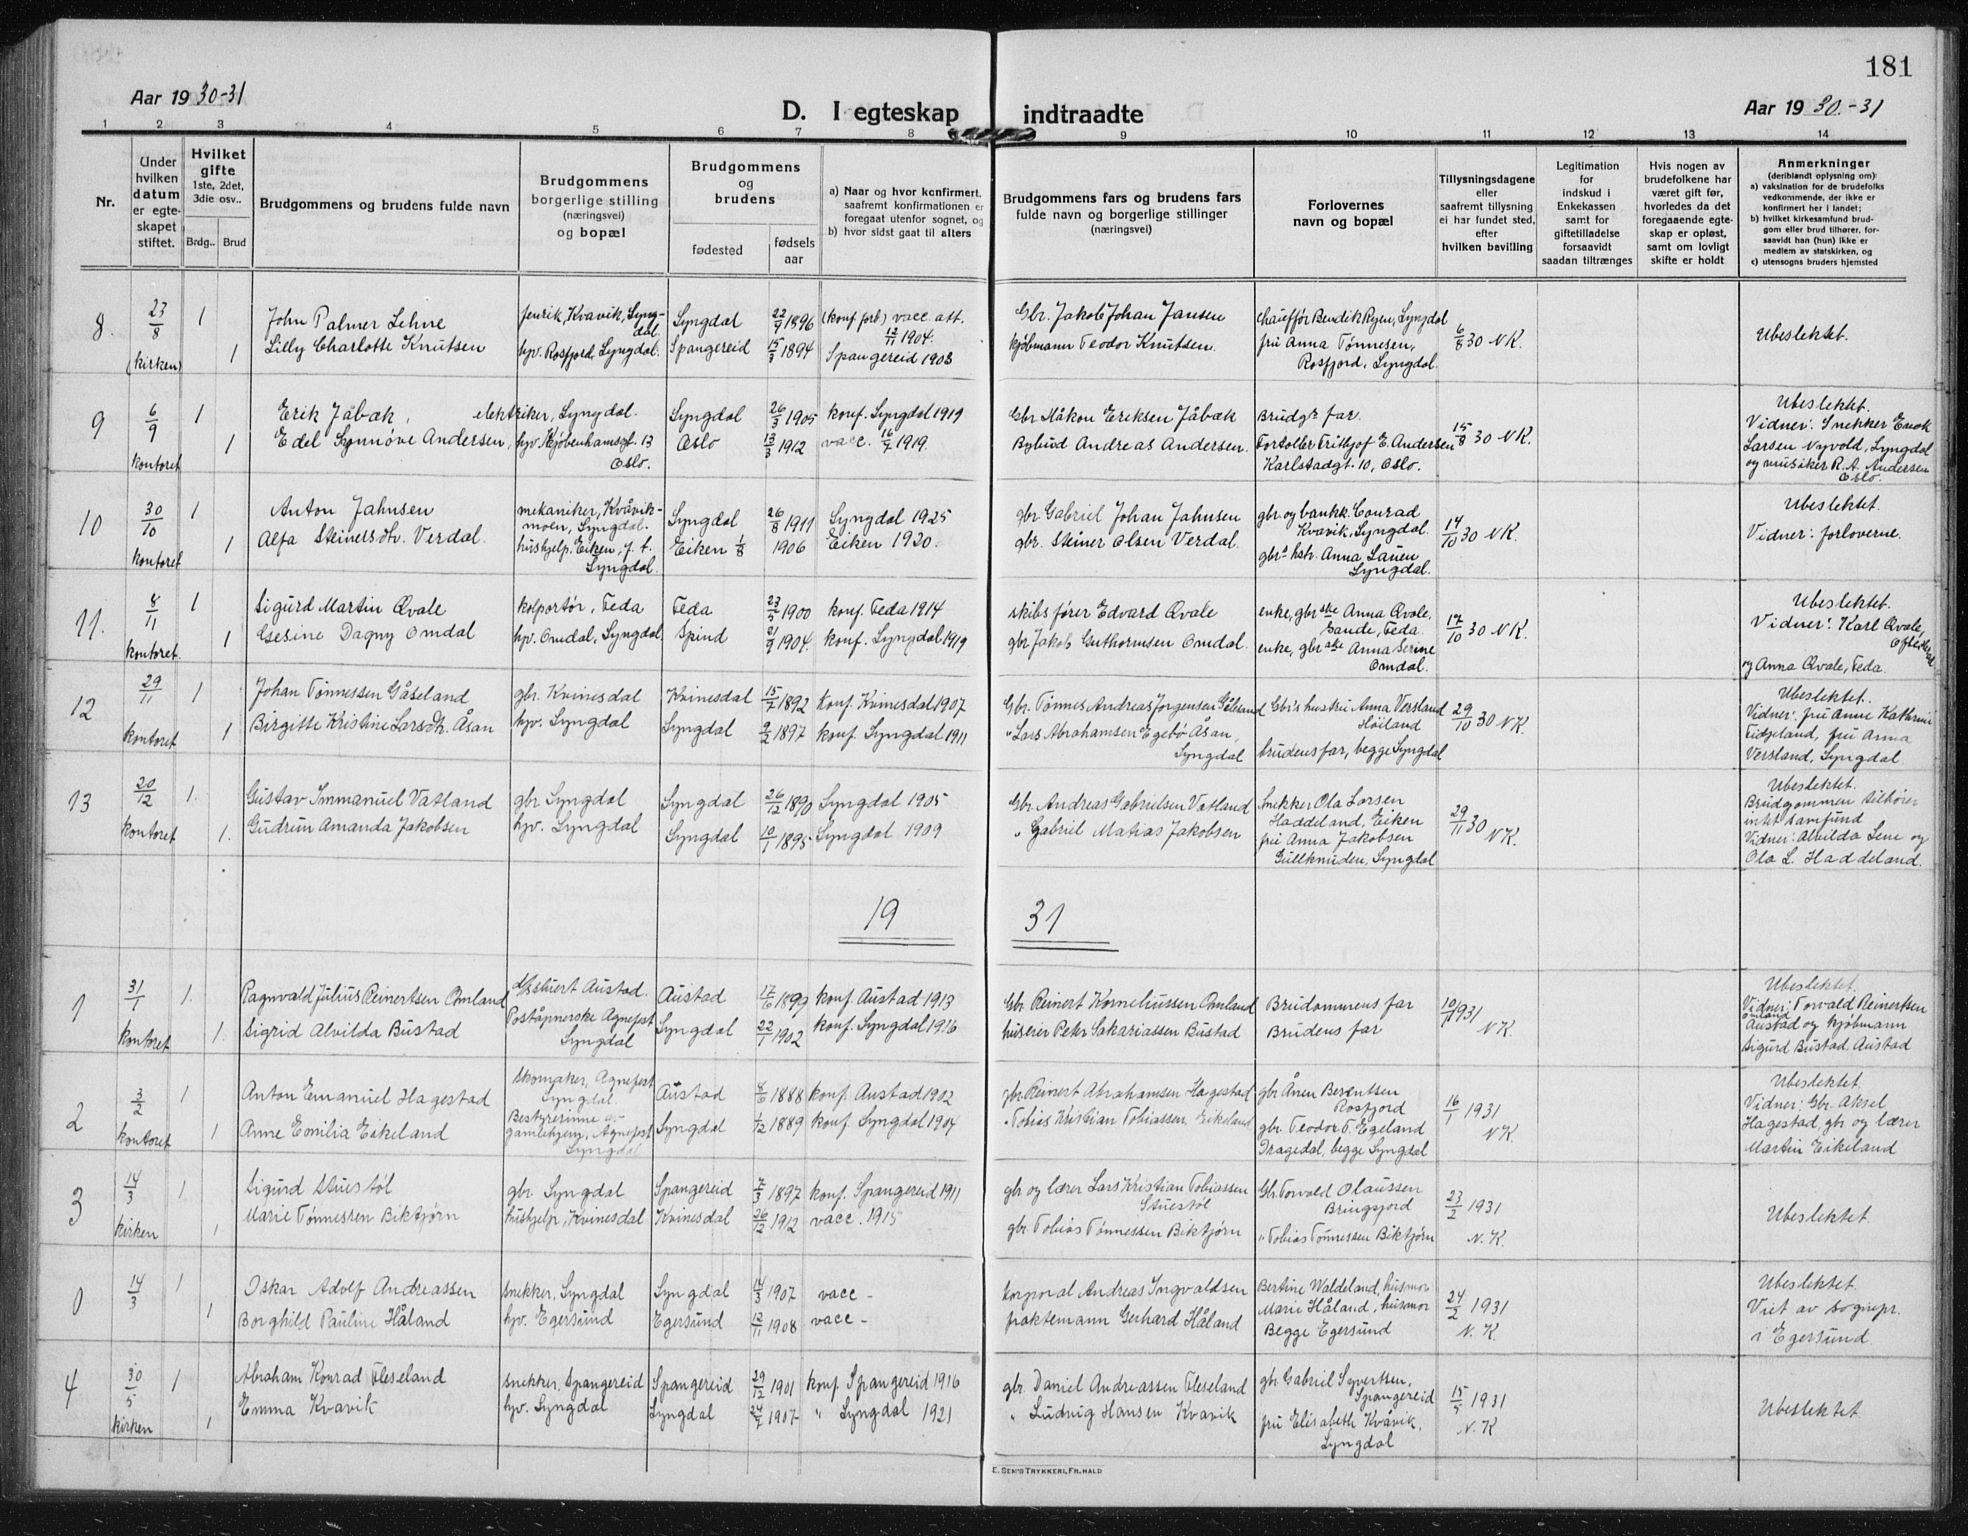 181
Aar 1930-31
D. I egteskap indtraadte
Aar 1930.-31
1 2 3 4 5 6 7 8 9 10 11 12 13 14
Nr.
Under hvilken datum er egteskapet stiftet.
Hvilket gifte
1ste, 2det, 3die osv..
Brdg.. Brud
Brudgommens og brudens fulde navn
Brudgommens borgerlige stilling (næringsvei) og bopæl
Brudgommens og brudens
fødested
fødsels aar
a) Naar og hvor konfirmert, saafremt konfirmationen er foregaat utenfor sognet, og
b) hvor sidst gaat til alters
Brudgommens fars og brudens fars fulde navn og borgerlige stillinger (næringsvei)
Forlovernes navn og bopæl
Tillysningsdagene eller saafremt tillysning ei har fundet sted, efter hvilken bevilling
Legitimation for indskud i Enkekassen samt for giftetilladelse forsaavidt saadan tiltrænges
Hvis nogen av brudefolkene har været gift før, hvorledes da det foregaaende egteskap er opløst, samt om lovlig skifte er holdt
Anmerkninger (deriblandt oplysning om):
a) vaksination for de brudefolks vedkommende, der ikke er konfirmert her i landet;
b) hvilket kirkesamfund brudgom eller brud tilhører, forsaavidt han (hun) ikke er medlem av statskirken, og
c) utensogns bruders hjemsted
8. 23/8 1 John Palmer Lehne fenrik, Kvavik, Lyngdal Lyngdal 22/9 1896 (konf forb) vacc. att. 12/11 1904. Gbr. Jakob Johan Jansen Chauffør Bendik Ryen, Lyngdal 6/8 30 NK. Ubeslektet.
(kirken) 1 Lilly Charlotte Knutsen hjv. Rosfjord, Lyngdal. Spangereid 15/3 1894 Spangereid 1908 kjøbmann Teodor Knutsen. fru Anna Tønnesen, Rosfjord, Lyngdal.
9 6/9 1 Erik Jåbæk, elektriker, Lyngdal. Lyngdal 26/3 1905 konf. Lyngdal 1919 Gbr Håkon Eriksen Jåbæk Brudgs far. 15/8 30 NK. Ubeslektet.
kontoret 1 Edel Synnøve Andersen, hjv. Kjøbenhamsgt. 13 Oslo. Oslo 13/3 1912 vacc. 16/7 1919. Bybud Andreas Andersen. Fortoller Fritjof E. Andersen Karlstadgt. 10, Oslo.
Vidner: Snekker Enok Larsen Nyvold, Lyngdal og musiker R. A. Andersen Oslo.
10 30/10 1 Anton Jahnsen mekaniker, Kvåvikmoen, Lyngdal. Lyngdal 26/8 1911 Lyngdal 1925 gbr Gabriel Johan Jahnsen gbr og bankk. Conrad Kvavik, Lyngdal. 14/10 30 NK. Ubeslektet.
kontoret 1 Alfa Steinersdtr. Verdal. hushjelp, Eiken, f. t. Lyngdal. Eiken 1/8 1906 Eiken 1920. gbr. Steiner Olsen Verdal. gbrs hstr. Anna Lauen Lyngdal.
Vidner: forloverne.
11. 8/11 1 Sigurd Martin Qvale kolportør, Feda Feda 23/5 1900 konf. Feda 1914 skibsfører Edvard Qvale enke, gbrske Anna Qvale, Sande, Feda. 17/10 30 NK. Ubeslektet.
kontoret. 1 Gesine Dagny Omdal hjv. Omdal, Lyngdal. Spind 21/9 1904. konf. Lyngdal 1919 gbr Jakob Guthormsen Omdal. enke, gbrske Anna Serine Omdal.
Vidner: Karl Qvale, og Anna Qvale, Feda.
12 29/11 1 Johan Tønnessen Gåseland gbr. Kvinesdal Kvinesdal 15/7 1892 Konf. Kvinesdal 1907 Gbr. Tønnes Andreas Jørgensen Gåseland Gbr's hustru Anna Versland Høiland 29/10 30 NK. Ubeslektet.
kontoret 1 Birgitte Kristine Larsdtr. Åsan hjv. Lyngdal Lyngdal 9/2 1897 konf. Lyngdal 1911 " Lars Abrahamsen Egebø Åsan, Lyngdal brudens far, begge Lyngdal
Vidner: fru Anne Kathrine Fidjeland, fru Anna Versland, Lyngdal
13 20/12 1. Gustav Immanuel Vatland gbr Lyngdal Lyngdal 26/12 1890 Lyngdal 1905 Gbr. Andreas Gabrielsen Vatland Snekker Ola Larsen Haddeland, Eiken 29/11 30 NK. Ubeslektet.
kontoret 1. Gudrun Amanda Jakobsen hjv. Lyngdal Lyngdal 10/1 1895. Lyngdal 1909 " Gabriel Matias Jakobsen fru Anna Jakobsen Gullknuden, Lyngdal
Brudgommen tilhører intet samfund
Vidner: Alvilda Lene og Ola L. Haddeland.
19 31
1 31/1 1. Ragnvald Julius Reinertsen Omland Austad. Austad 17/6 1899 konf Austad 1913 Gbr. Reinert Korneliussen Omland Brudommens far 10/1 1931 NK. Ubeslektet.
kontoret 1. Sigrid Alvilda Bustad Poståpnerske Agnefest Lyngdal Lyngdal 22/1 1902 konf. Lyngdal 1916 huseier Peter Sakariassen Bustad Brudens far
Vidner: Torvald Reinertsen Omland Austad og kjøbmann Sigurd Bustad, Austad
2 3/2 1 Anton Emanuel Hagestad skomaker, Agnefest Lyngdal. Austad 8/6 1888 konf. Austad 1902 gbr Reinert Abrahamsen Hagestad gbr Ånen Berentsen Rosfjord 16/1 1931 NK. Ubeslektet.
kontoret 1 Anne Emilia Eikeland Bestyrerinne av gamlehjem, Agnefest Lyngdal Lyngdal 1/12 1889 konf. Lyngdal 1904 " Tobias Kristian Tobiassen Eikeland gbr. Teodor T. Egeland Dragedal, begge Lyngdal
Vidner: Gbr. Aksel Hagestad, gbr og lærer Martin Eikeland
3 14/3 1 Sigurd Stuestøl gbr. Lyngdal Spangereid 7/3 1897 konf. Spangereid 1911 gbr og lærer Lars Kristian Tobiassen Stuestøl Gbr. Torvald Olaussen Bringsjord 23/2 1931 N.K. Ubeslektet.
kirken 1 Marie Tønnessen Biktjørn hushjelp, Kvinesdal Kvinesdal 26/12 1912 vacc. 1915 gbr Tobias Tønnessen Biktjørn " Tobias Tønnessen Biktjørn
0 14/3 1 Oskar Adolf Andreassen snekker, Lyngdal Lyngdal 14/3 1907 vacc - korporal Andreas Ingvaldsen Bertine Waldeland, husmor 24/2 1931 N.K. Ubeslektet.
1 Borghild Pauline Håland hjv. Egersund Egersund 12/11 1908 vacc - fraktemann Gerhard Håland Marie Håland, husmor Begge Egersund
Viet av sognepr. i Egersund.
4 30/5 1 Abraham Konrad Fleseland snekker, Spangereid Spangereid 29/12 1901 konf Spangereid 1916 gbr. Daniel Andreassen Fleseland gbr Gabriel Syvertsen, Spangereid 15/5 1931 N.K Ubeslektet
kirken 1 Emma Kvavik hjv. Lyngdal Lyngdal 24/7 1907 " Lyngdal 1921 " Ludvig Hansen Kvavik fru Elisabeth Kvåvik, Lyngdal
E. SEM'S TRYKKERI, FR.HALD